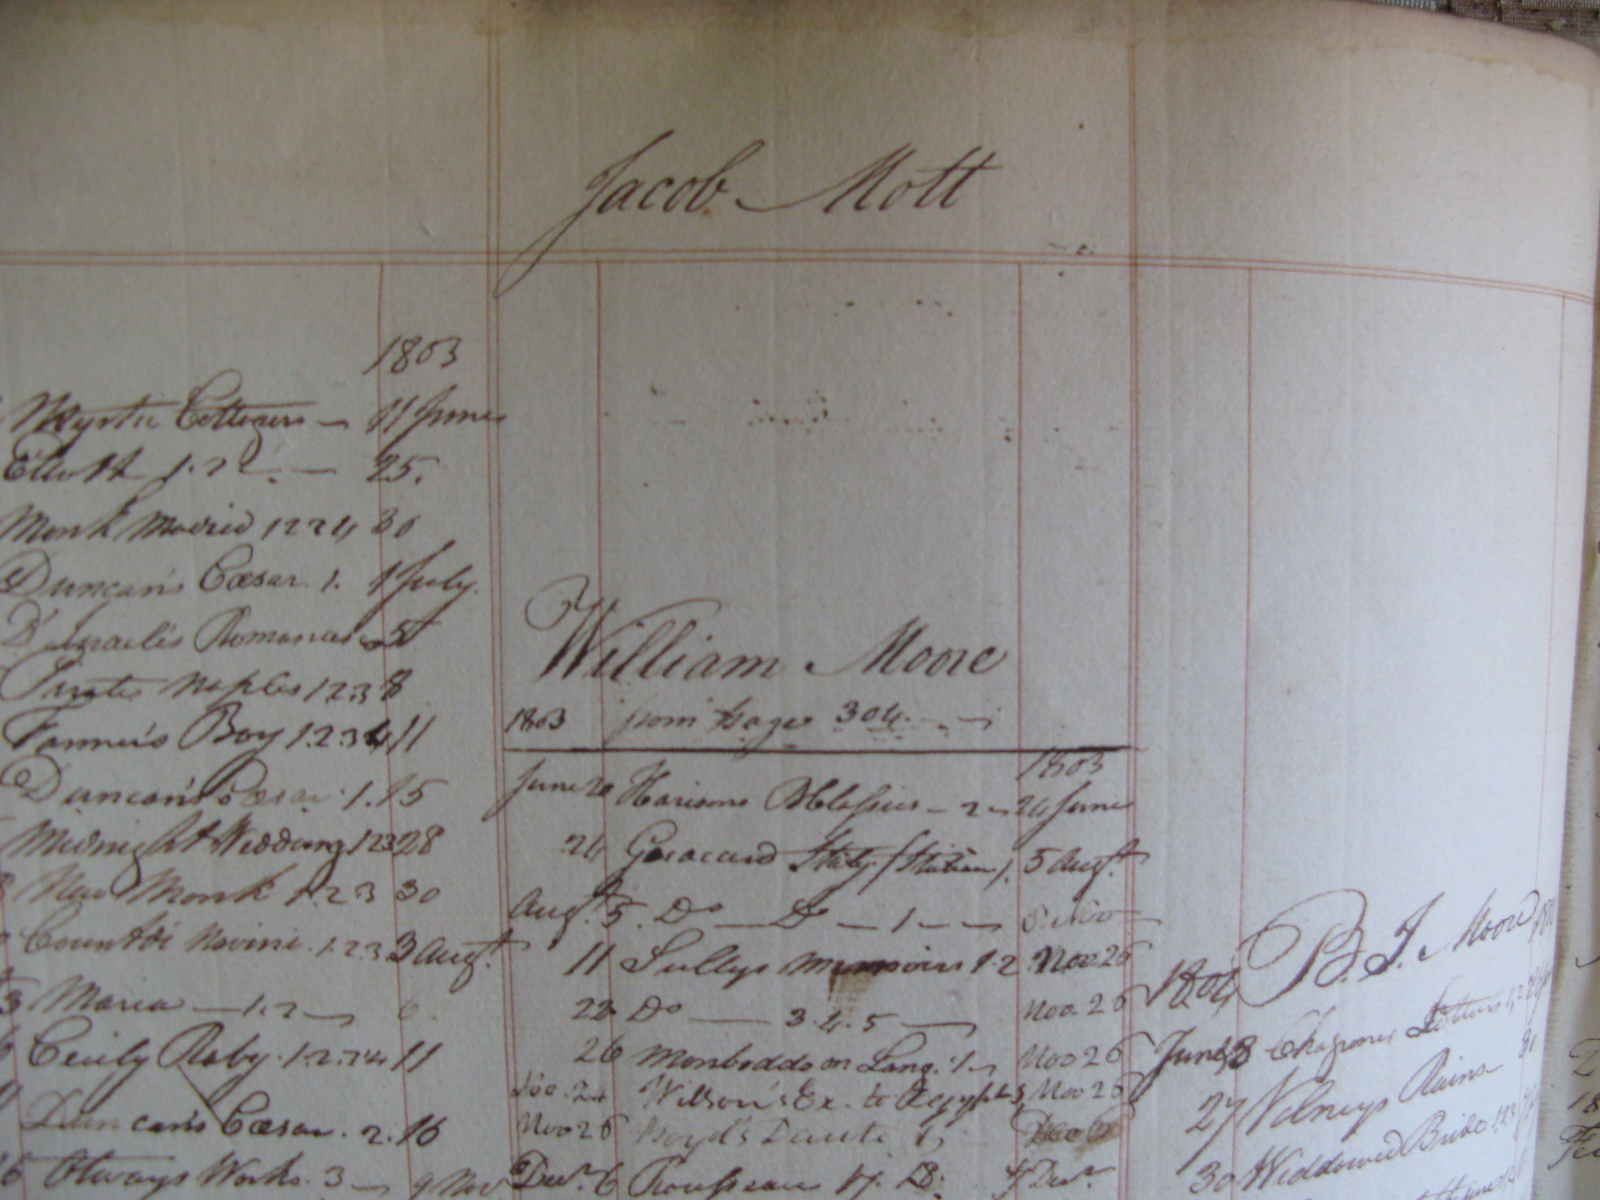 Jacob Mott
1803
Mystic Cottagers — 11 June
Elliott 1.2 — 25.
Monk Madrid 1234 30
Duncan's Cæsar. 1. 1 July.
D'Israeli's Romances 5
Pirate Naples 123 8
Farmer's Boy 1.2.3.4 11
Duncan's Cæsar. 1. 15
Midnight Wedding 123 28
New Monk 1.2.3 30
Count di Novini. 1.2.3 3 Augt.
Maria — 1.2 — 6
Cecily Raby. 1.2.3.4 11
Duncan's Cæsar. 2. 16
Otways Works. 3 — 9 Nov
William Moore
1803 from page 304.
1803
June 20 — 2 — 24 June
24 Italy (Italian) 5 Augt.
Augt. 5. Do — Do — 1 — Nov
11 Sullys memoirs 1.2 Nov. 26
22 Do — 3.4.5 — Nov. 26
26 Monboddo on Lang. 1 Nov 26
Nov. 24 Wilson's Ex. to Egypt Nov 26
Nov 26 Boyd's Dante Dec 6
Decr. 6 Rousseau 17. 18. Decr.
B. J. Moore
1804
June 8 Chapones Letters
27 Volneys Ruins
30 Widdowed Bride 1.2.3